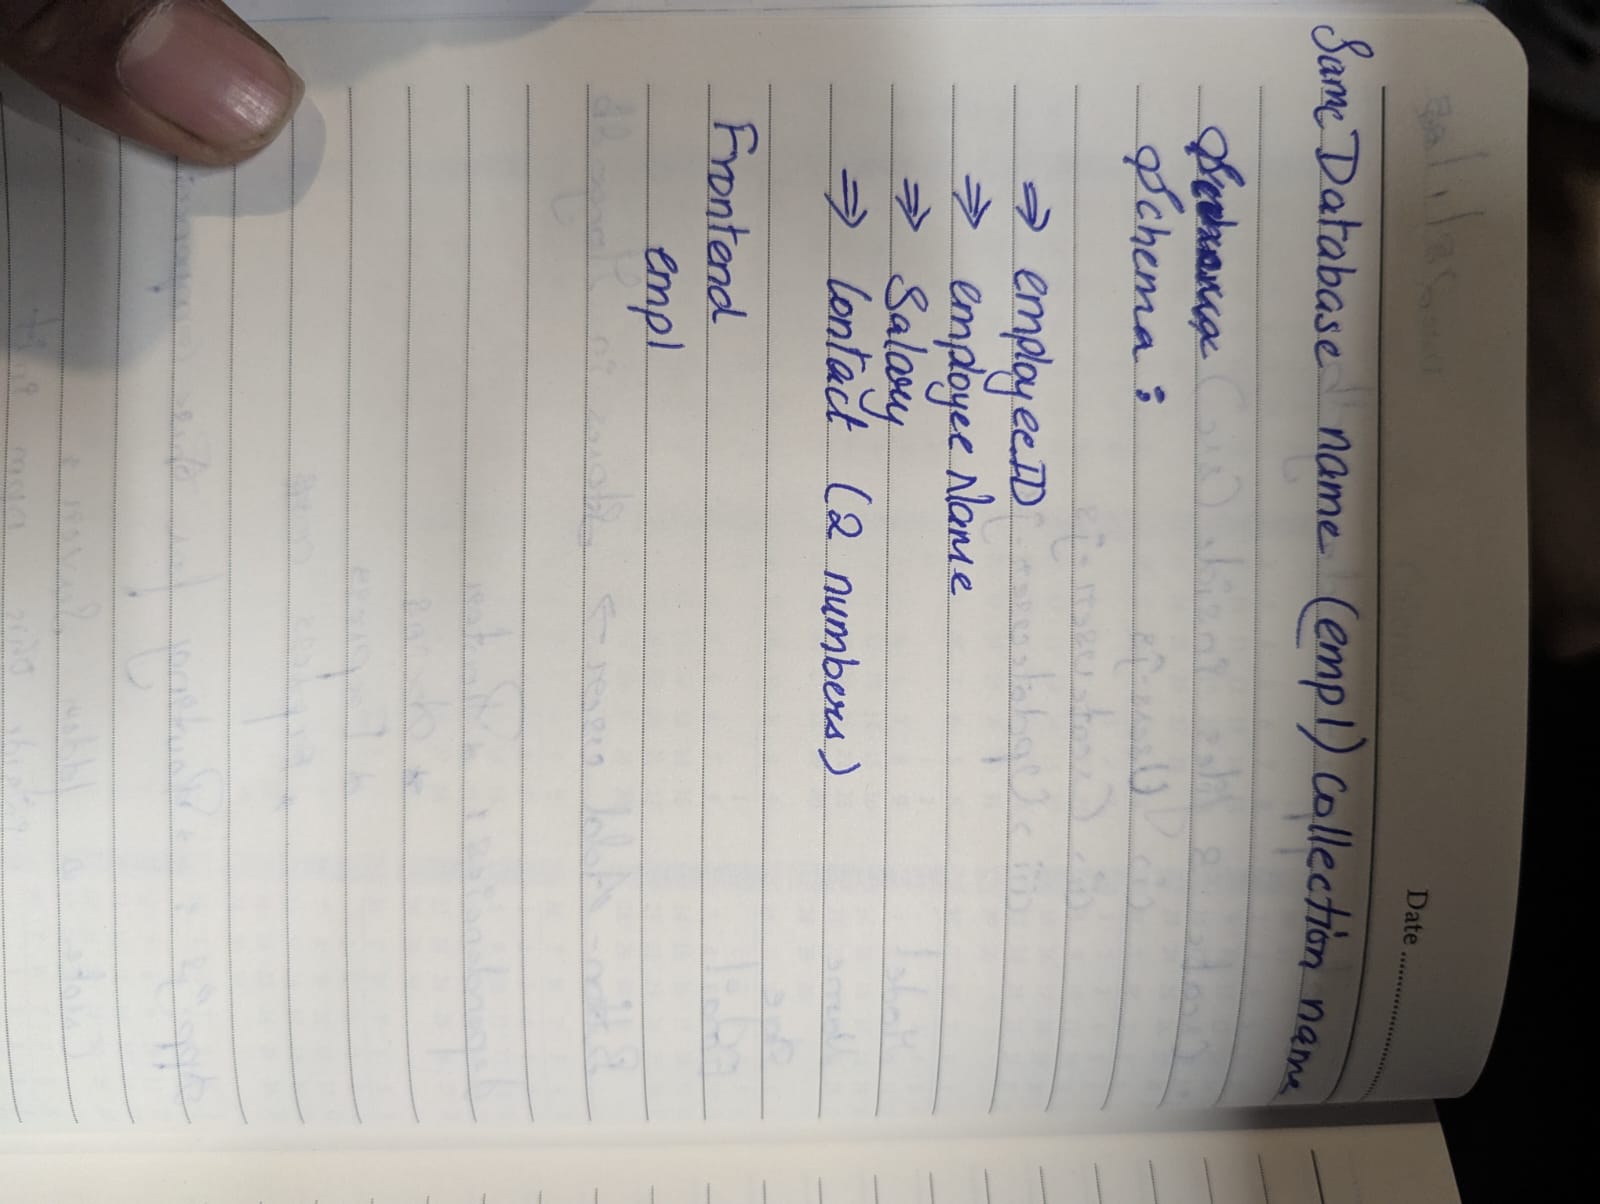 Date
Same Database name (empl) collection name
Schema :
⇒ employeeID
⇒ employee Name
⇒ Salary
⇒ Contact (2 numbers)
Frontend
empl